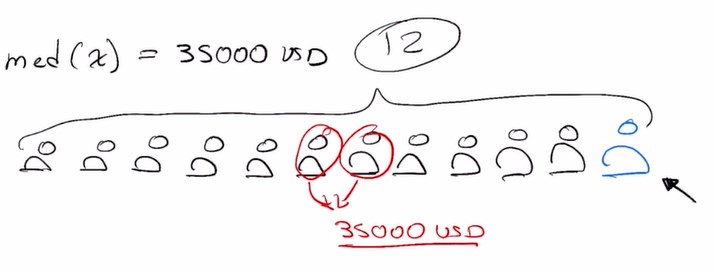 med(x) = 35000 USD
12
÷2
35000 USD